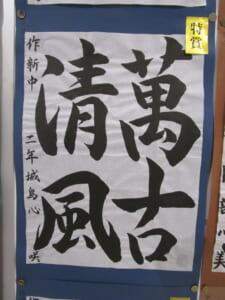 特賞
萬古
清風
作新中 二年 城島心咲